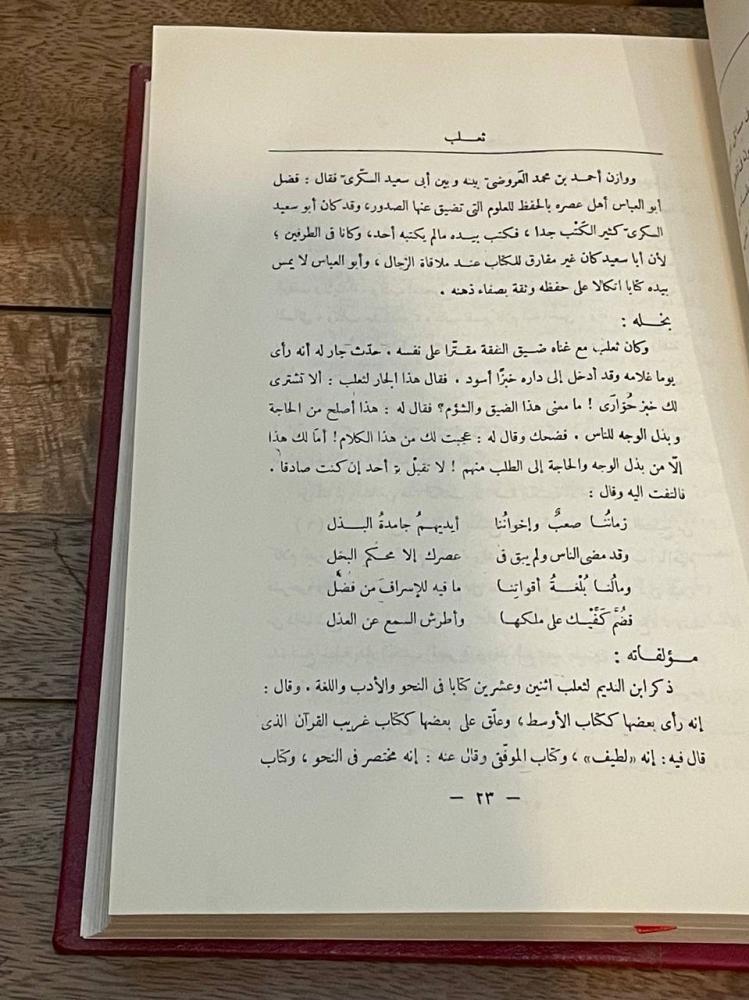 ثعلب
ووازن أحمد بن محمد العروضىّ بينه وبين أبى سعيد السكّرىّ فقال : فضل
أبو العباس أهل عصره بالحفظ للعلوم التى تضيق عنها الصدور، وقد كان أبو سعيد
السكرىّ كثير الكَتْب جدا ، فكتب بيده مالم يكتبه أحد، وكانا فى الطرفين ؛
لأن أبا سعيد كان غير مفارق للكتاب عند ملاقاة الرّجال ، وأبو العباس لا يمس
بيده كتابا اتكالا على حفظه وثقة بصفاء ذهنه .
بخله :
وكان ثعلب مع غناه ضيق النفقة مقتّرا على نفسه . حدّث جار له أنه رأى
يوما غلامه وقد أدخل إلى داره خبزًا أسود . فقال هذا الجار لثعلب : ألا تشترى
لك خبز حُوّارَى ! ما معنى هذا الضيق والشؤم؟ فقال له : هذا أصلح من الحاجة
وبذل الوجه للناس . فضحك وقال له : عجبت لك من هذا الكلام! أما لك هذا
إلّا من بذل الوجه والحاجة إلى الطلب منهم ! لا تقبلْ برّ أحد إن كنت صادقا .
فالتفت اليه وقال :
زماننُا صعبٌ وإخوانُنا أيديهمُ جامدةُ البذل
وقد مضى الناس ولم يبق فى عصرك إلا محكم البخل
ومالُنا بُلْغةُ أقواتِنا ما فيه للإسراف من فضْل
فضُم كَفَّيْك على ملكها وأطرش السمع عن العذل
مؤلفاته :
ذكر ابن النديم لثعلب اثنين وعشرين كتابا فى النحو والأدب واللغة . وقال :
إنه رأى بعضها ككتاب الأوسط، وعلّق على بعضها ككتاب غريب القرآن الذى
قال فيه: إنه «لطيف» ، وكتاب الموفّقى وقال عنه : إنه مختصر فى النحو ، وكتاب
— ٢٣ —